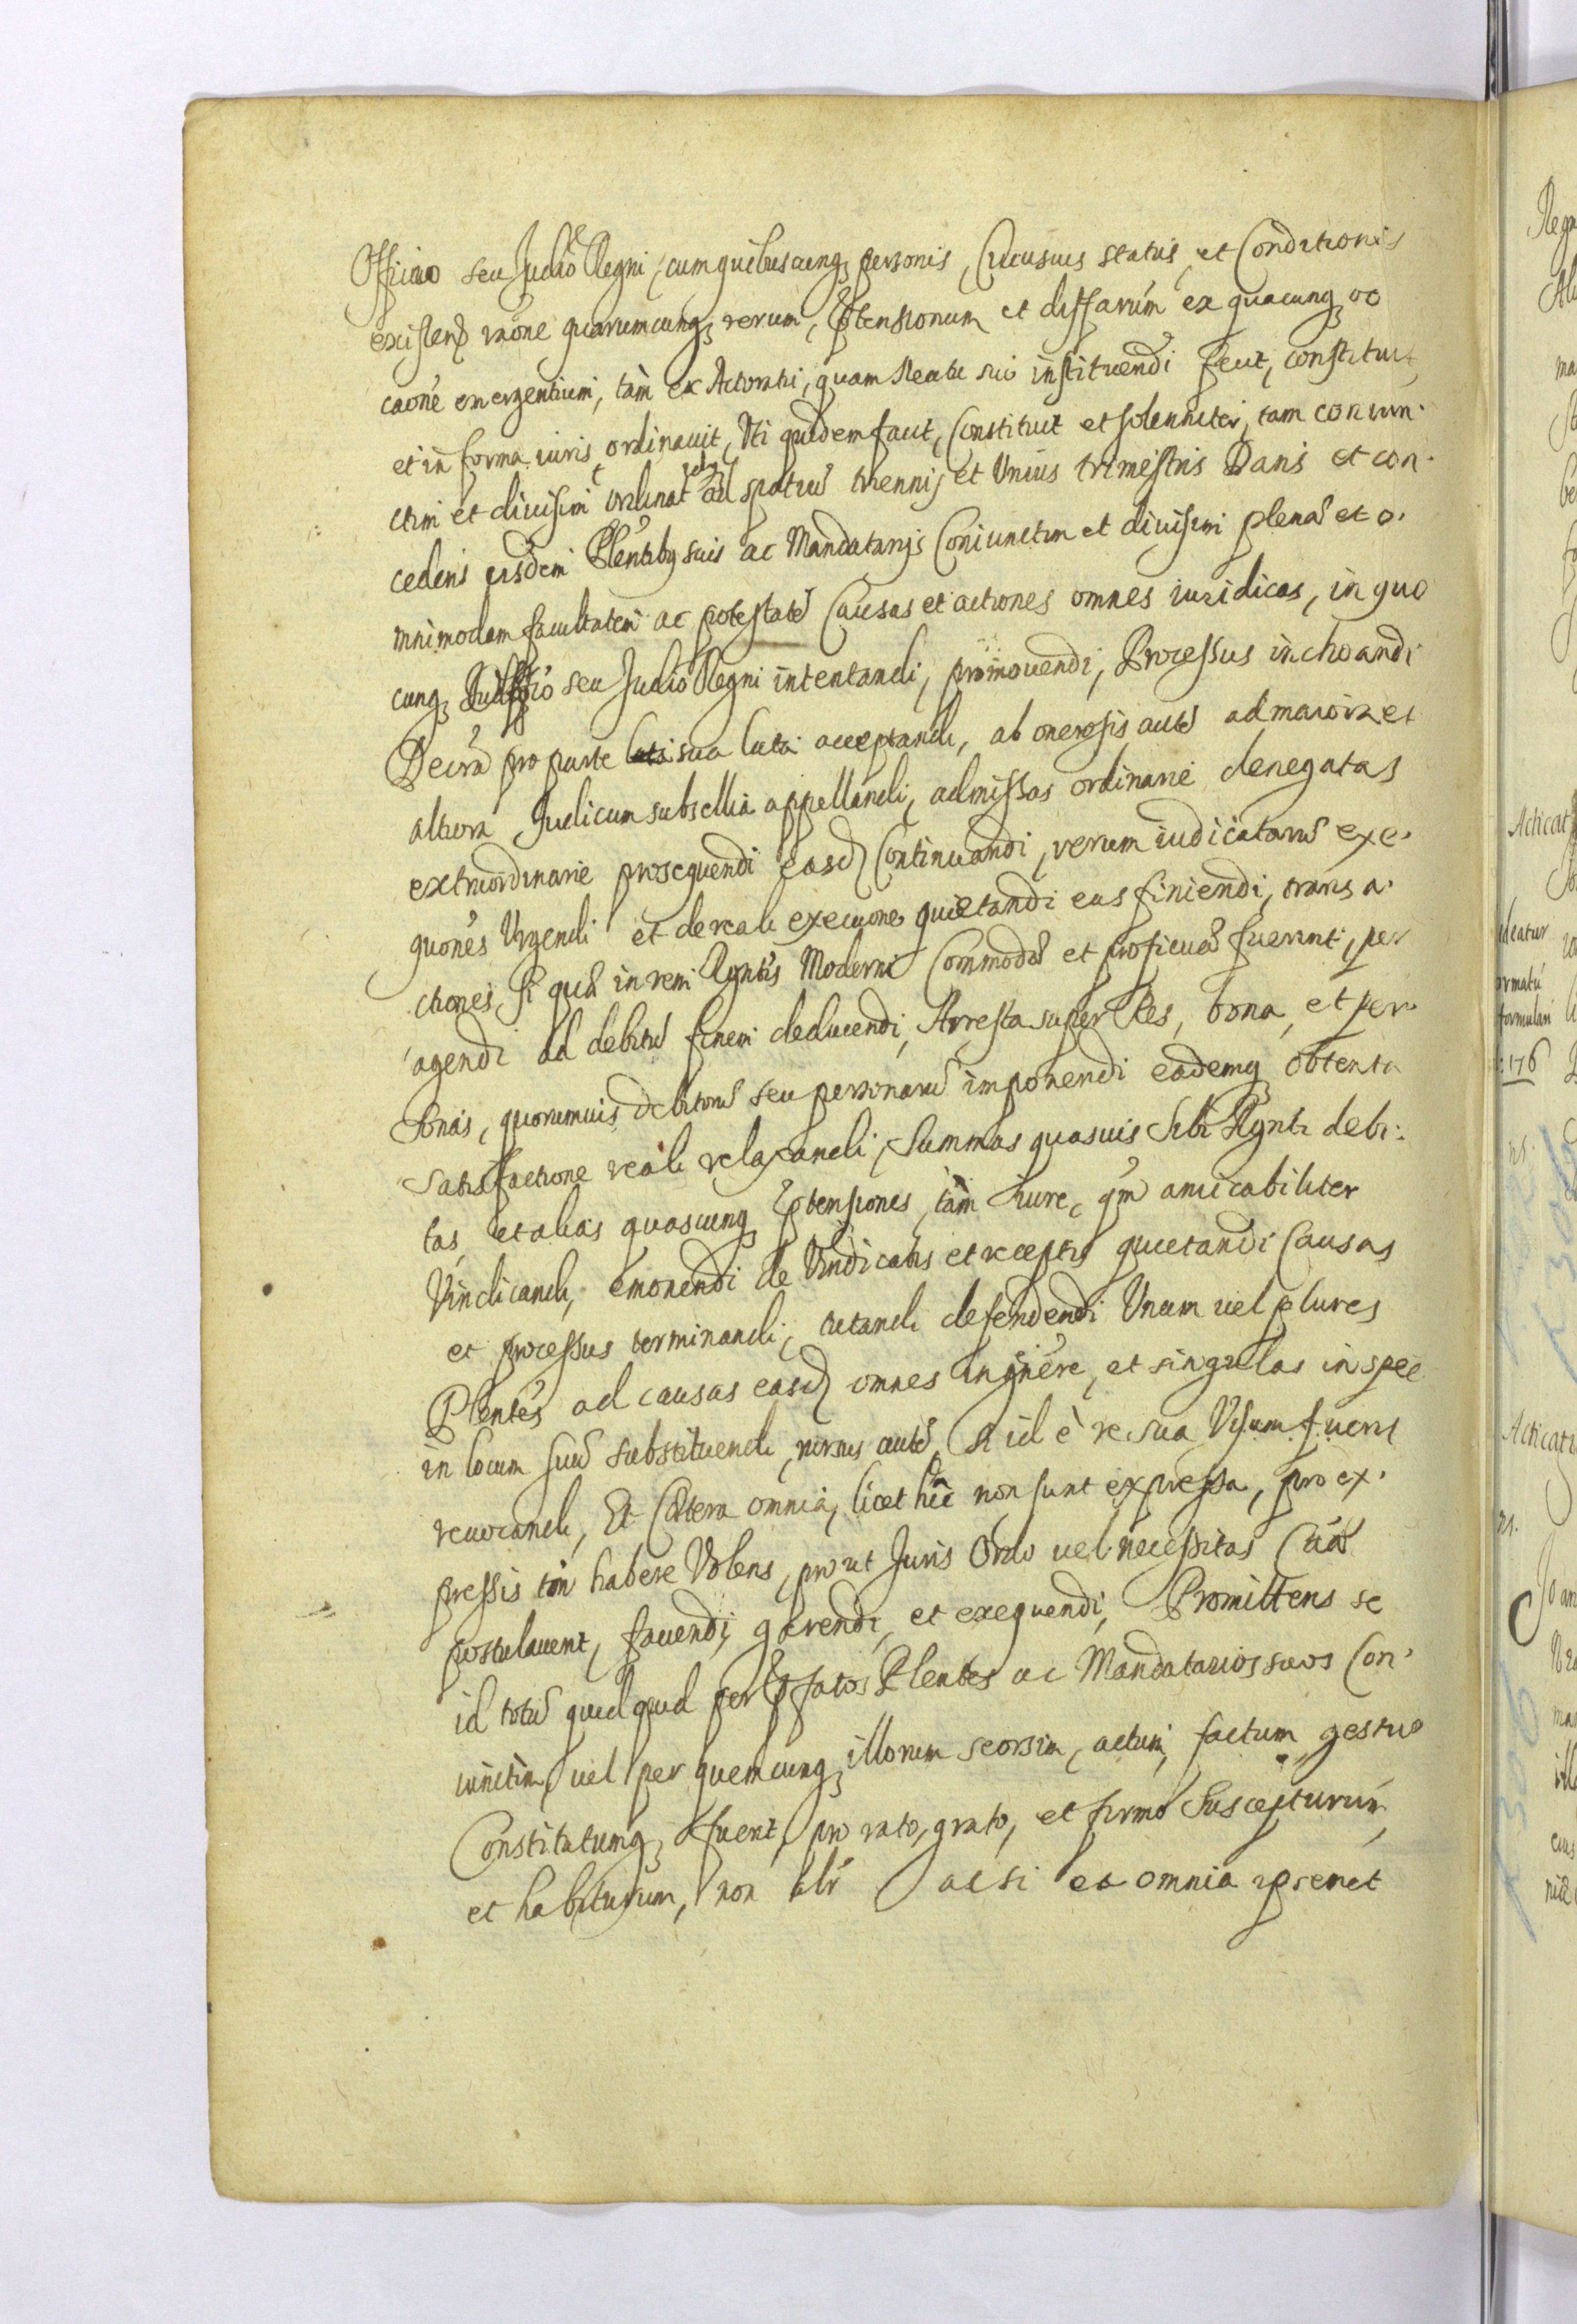 Officio seu Judõ Regni, cum quibuscunq; personis, Cuiusuis status, et Conditionis
existen̄ raõne quarumcunq; rerum, p̃tensionum et diffarum̄ ex quacunq; oc
caoñe emergentium, tàm ex Actoratu, quam Reatu suo instituendi fecit, constituit
et in forma iuris ordinauit, Uti quidem facit, Constituit et solenniter, tam coniun·
ctim et diuisim ordinat ad spatiũ triennij et Unius trimestris Dans et con·
cedens eisdem Plen̄tibq suis ac Mandatarijs Coniunctim et diuisim plenã et o·
mnimodam facultatem ac potestatẽ Causas et actiones omnes iuridicas, in quo
cunq; seu Judõ Regni intentandi, promouendi, Processus inchoandi
Decrã pro parte sua lata acceptandi, ab onerosis autẽ ad maiora et
altiora Judicum subsellia appellandi, admissas ordinarie denegatas
extraordinarie prosequendi easd̄ Continuandi, rerum iudicatarũ exe·
quoñes Urgendi et de reali execuone quietandi eas finiendi, transa·
ctiones, si quã in rem Rgntis̃ Moderni Commodã et proficuã fuerint, per
agendi ad debitũ finem deducendi, Arresta super Res, bona, et per·
sonas, quorumuis debitorũ seu personarũ imponendi eademq; obtenta
satisfactione reali relaxandi, Summas quasuis sibi Rgnti debi·
tas et alias quascunq; p̃tensiones, tàm iure, qm̃ amicabiliter
Vindicandi, emonendi de Vindicatis et receptis quietandi Causas
et processus terminandi, citandi defendendi Unum uel plures
Plen̄tes ad causas easd̄ omnes in gñere, et singulas in spẽe
in locum suũ substituendi, rursus autẽ, si id è re sua Visum fuerit
reuocandi, Et Cætera omnia, licet hîc non sunt expressa, pro ex·
pressis tñ habere Volens, prout Juris Ordo uel necessitas Cãã
postulauerit, faciendi, gerendi, et exequendi, Promittens se
id totũ quidquid per p̃fatos Plentes ac Mandatarios suos Con·
iunctim, uel per quemcunq; illorum seorsim, actum, factum, gestũ
Constitutumq; fuerit, pro rato, grato, et firmo suscepturum,
et habiturum, non alr̃ acsi ea omnia ipsemet